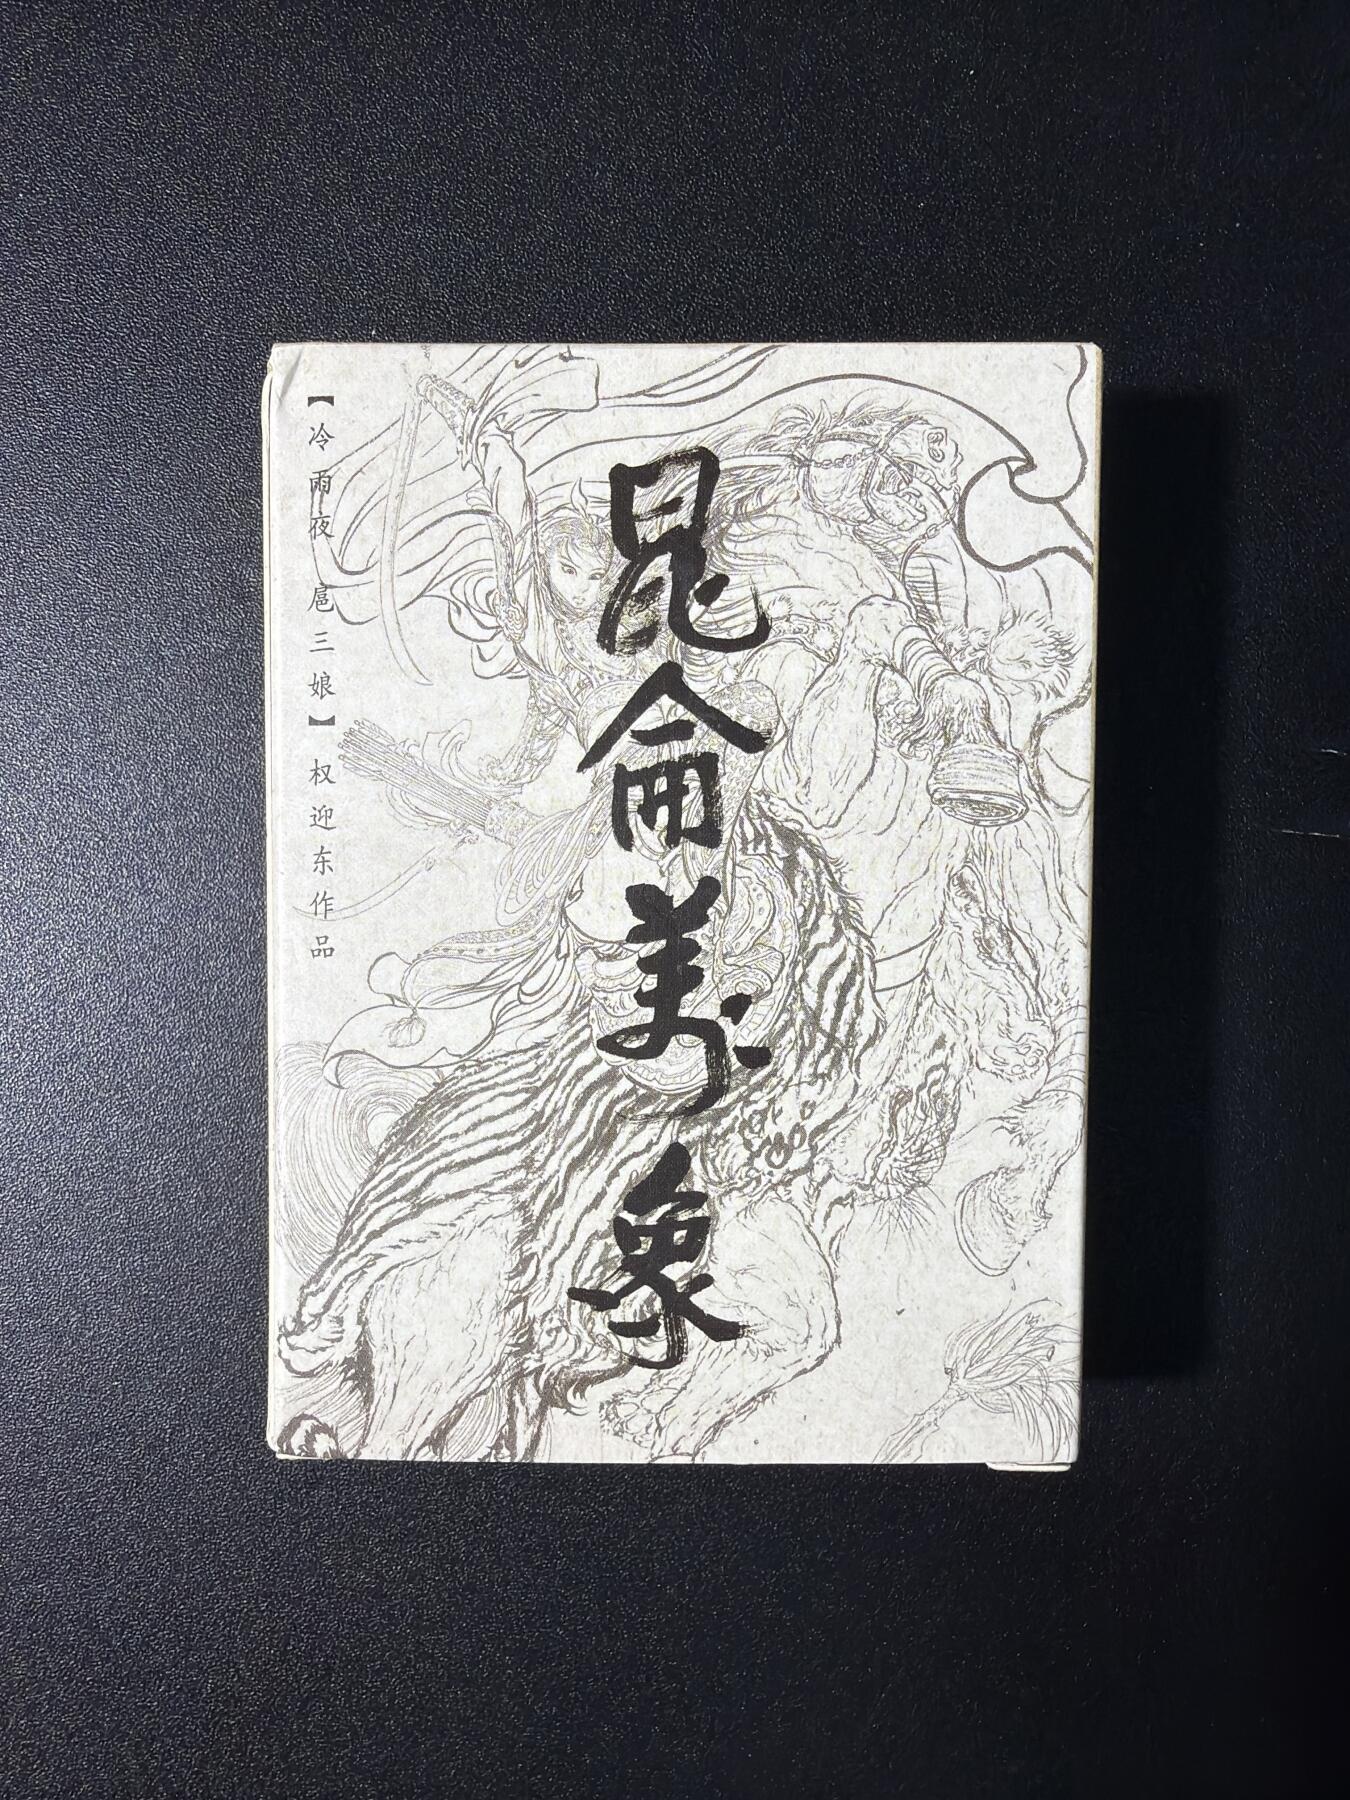 昆侖萬象
【冷雨夜 扈三娘】权迎东作品